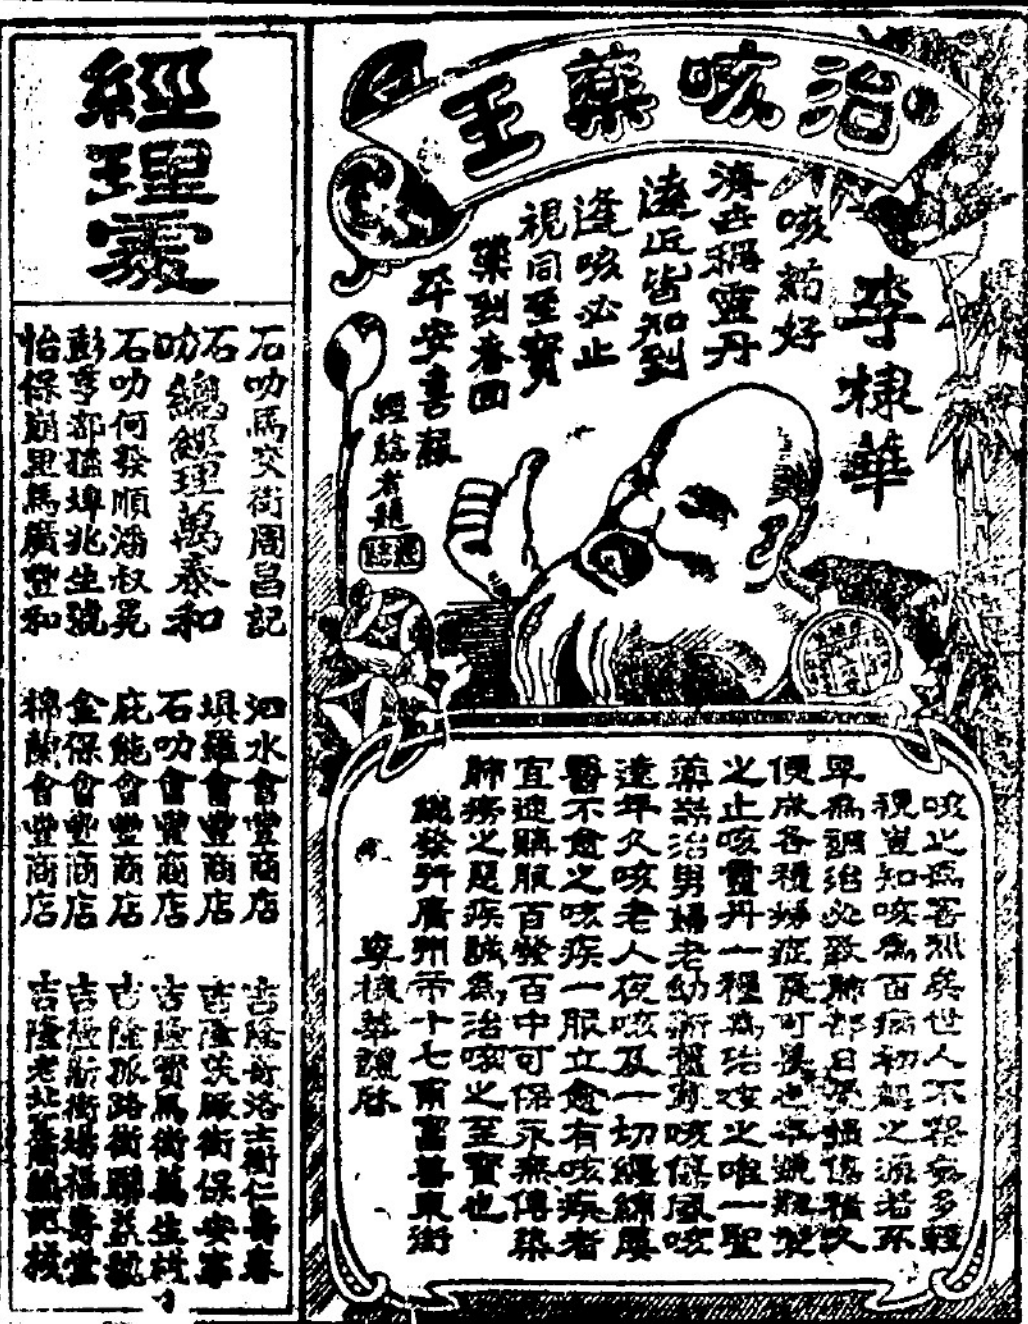 治咳藥王
李棣華
咳紛好
濟世稱靈丹
遠近皆知到
逢咳必止
視同至寶
藥到春回
平安喜報
經驗者題
咳之為害烈矣世人不察病多輕
視豈知咳為百病初起之漸若不
早為調治必致肺部日受損傷積久
便成各種癆症
之止咳靈丹一種為治咳之唯一聖
藥專治男婦老幼新舊咳傷風咳
遠年久咳老人夜咳及一切纏綿屢
醫不愈之咳疾一服立愈有咳疾者
宜速購服百發百中可保永無傳染
肺癆之惡疾誠為治咳之至寶也
總發行廣州市十七甫富善東街
李棣華謹啟
經理處
石叻馬交街周昌記
石叻總經理萬泰和
石叻何發順潘叔晃
彭亨都猛埠兆生號
怡保朗里馬廣豐和
泗水會豐商店
壩羅會豐商店
石叻會豐商店
庇能會豐商店
金保會豐商店
棉蘭會豐商店
吉隆 洛士街仁壽春
吉隆茨厰街保安寧
吉隆 馬街萬生
吉隆 路街聯益號
吉隆新街場福壽堂
吉隆老北 記棧